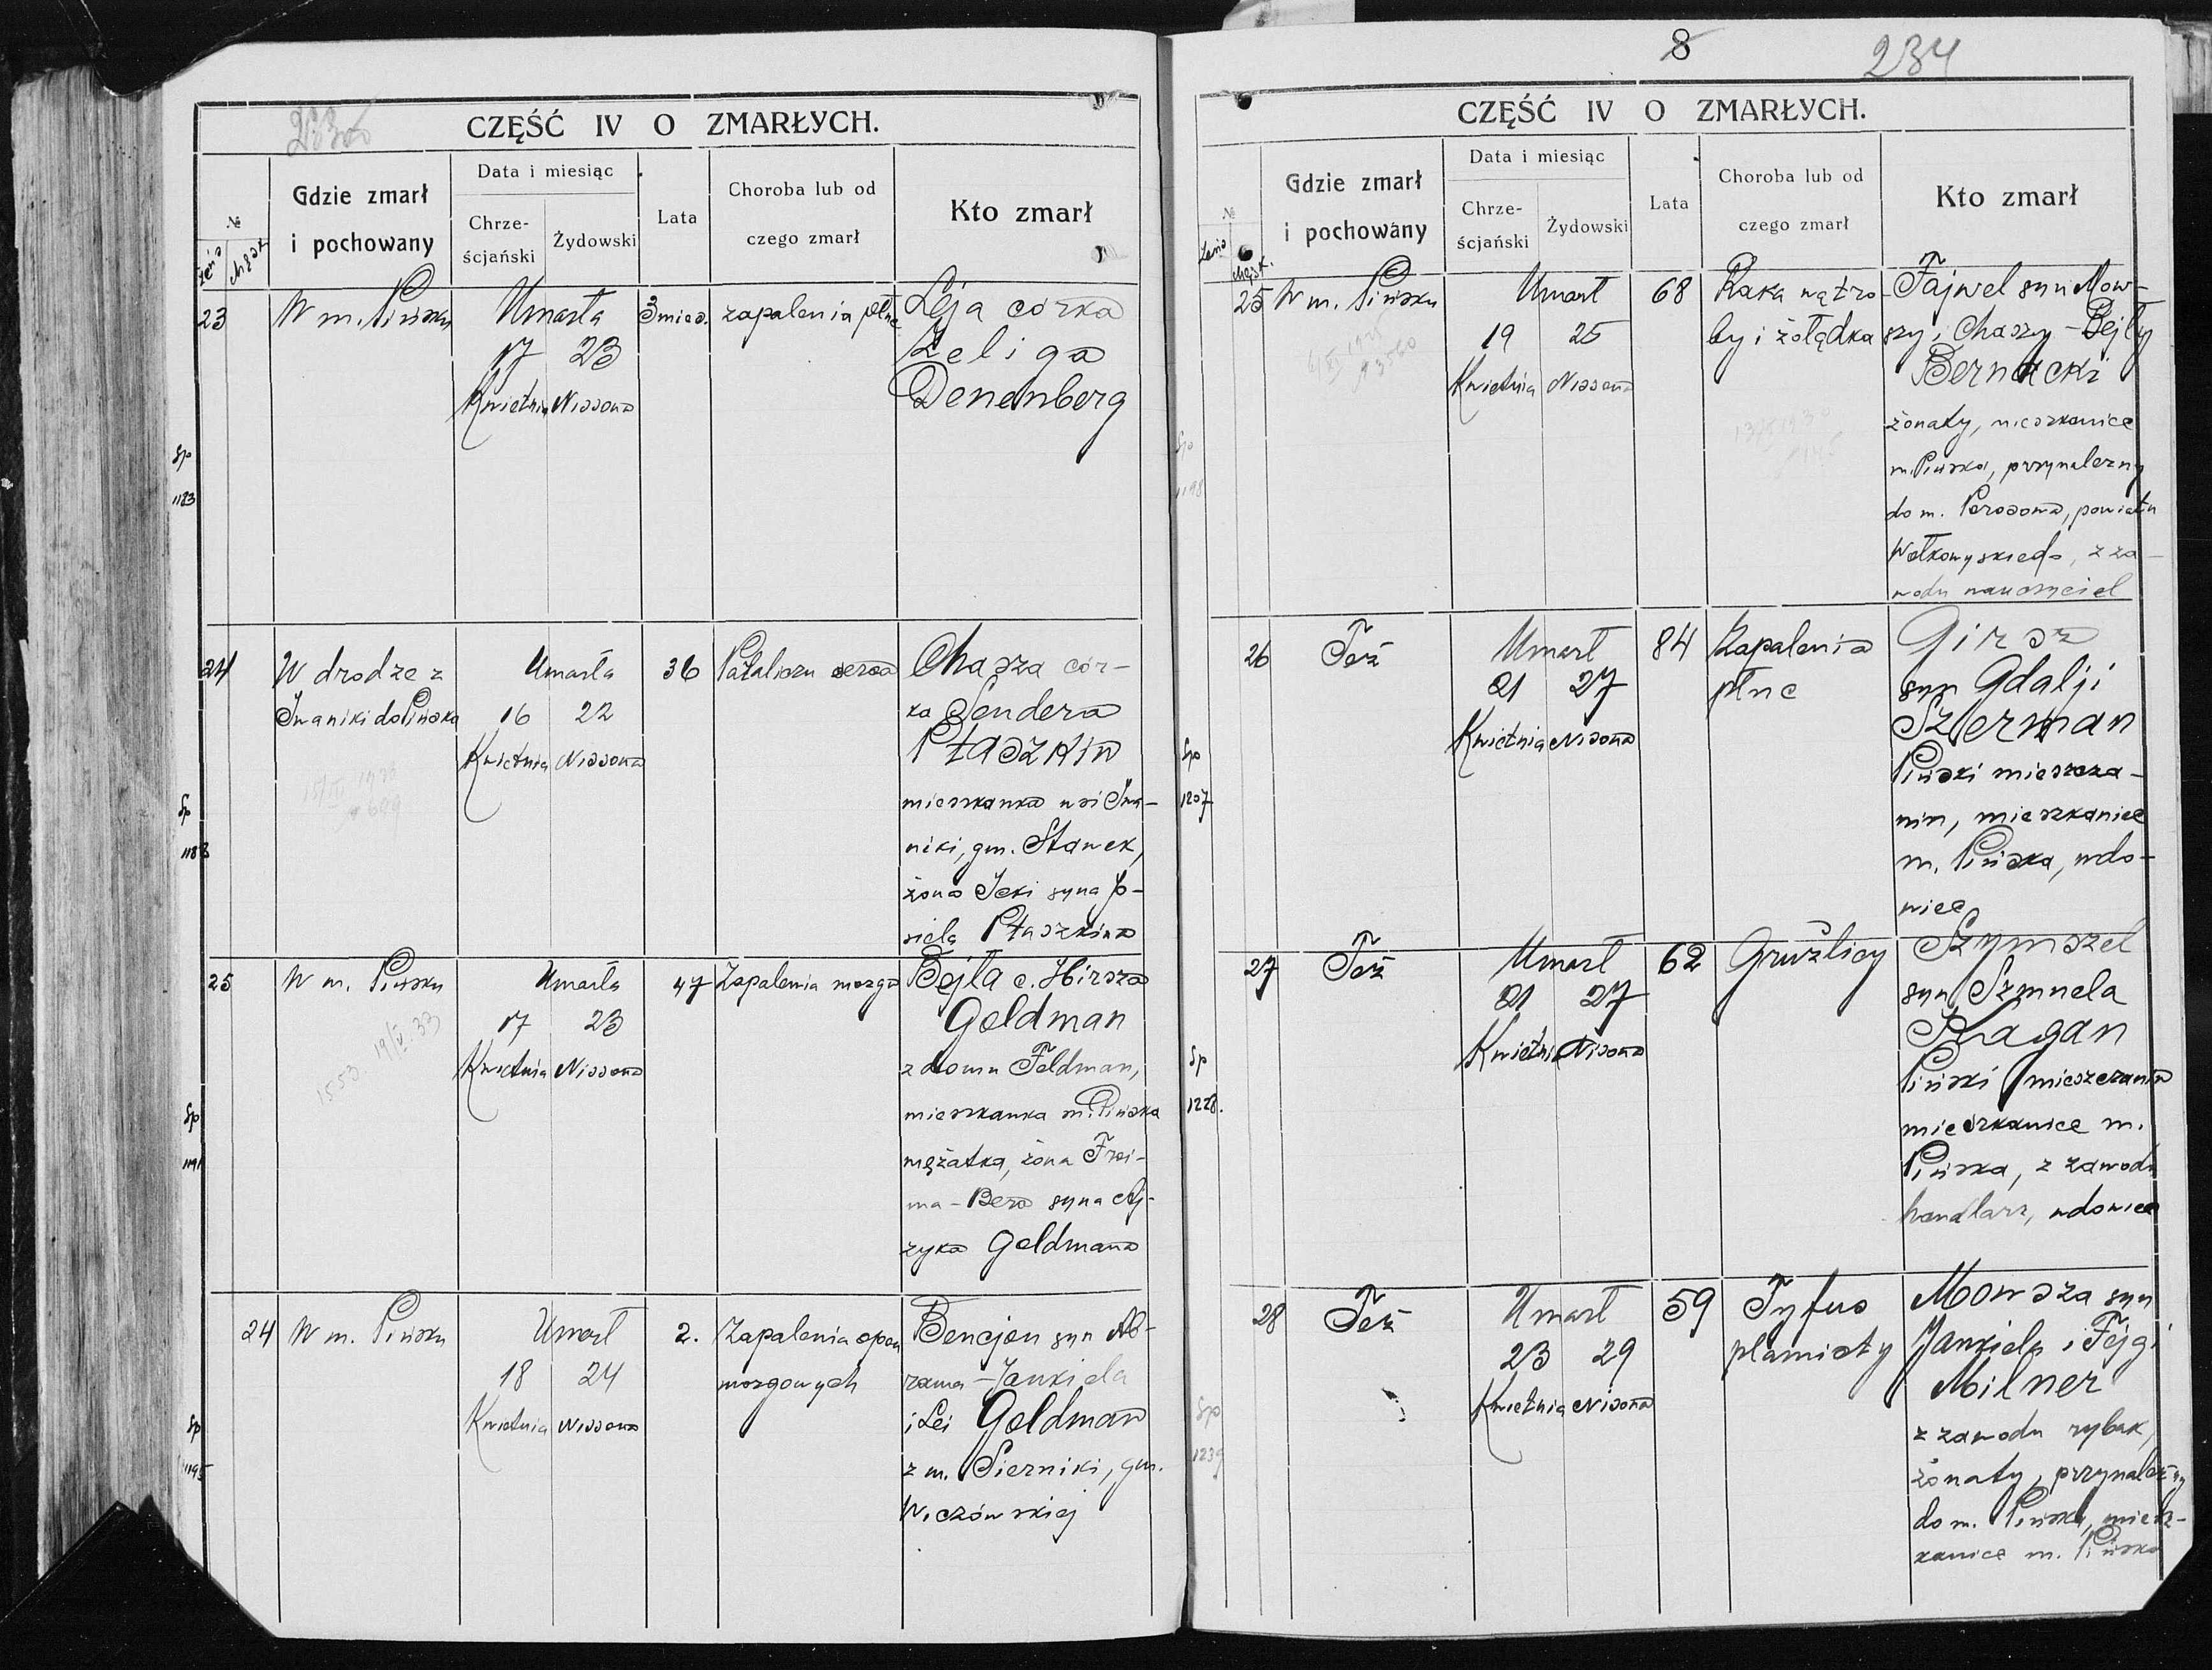 CZĘŚĆ IV O ZMARŁYCH.
№
żeńs
męsk
Gdzie zmarł
i pochowany
Data i miesiąc
Chrze-
ścjański
Żydowski
Lata
Choroba lub od
czego zmarł
Kto zmarł
23
W m. Pińsku
Umarła
17 23
Kwietnia Nissona
3 mies.
zapalenia płuc
Leja córka
Zeliga
Denenberg
Sp
1183
24
W drodze z
Iwaniki do Pińska
Umarła
16 22
Kwietnia Nissona
36
Paraliżu serca
Chasza cór-
ka Sendera
Ptaszkin
mieszkanka wsi Iwa-
niki, gm. Stawek,
żona Icki syna Jo-
siela Ptaszkina
Sp
1188
25
W m. Pińsku
19/V.33
1553
Umarła
17 23
Kwietnia Nissona
47
Zapalenia mózga
Bejla c. Hirsza
Goldman
z domu Feldman,
mieszkanka m. Pińska
mężatka, żona Froi-
ma-Bera syna Aj-
zyka Goldmana
Sp
1191
24
W m. Pińsku
Umarł
18 24
Kwietnia Nissona
2.
Zapalenia opon
mózgowych
Bencjon syn Ab-
rama-Jankiela
i Lei Goldman
z m. Sierniki, gm.
Wiczówskiej
Sp
1195
8
234
CZĘŚĆ IV O ZMARŁYCH.
№
żeńs
męsk.
Gdzie zmarł
i pochowany
Data i miesiąc
Chrze-
ścjański
Żydowski
Lata
Choroba lub od
czego zmarł
Kto zmarł
25
W m. Pińsku
Umarł
19 25
Kwietnia Nissona
68
Raka wątro-
by i żołądka
Fajwel syn Mow-
szy i Chaszy-Bejly
Bernacki
żonaty, mieszkaniec
m. Pińska, przynależny
do m. Porosowa, powiatu
Wołkowyskiego, z za-
wodu nauczyciel
Sp
1198
26
Też
Umarł
21 27
Kwietnia Nisona
84
Zapalenia
płuc
Girsz
syn Gdalji
Szterman
Piński mieszcza-
nin, mieszkaniec
m. Pińska, wdo-
wiec
Sp
1207
27
Też
Umarł
21 27
Kwietnia Nisona
62
Gruźlicy
Szymszel
syn Szmuela
Kagan
Piński mieszczanin
mieszkaniec m.
Pińska, z zawodu
handlarz, wdowiec
Sp
1228.
28
Też
Umarł
23 29
Kwietnia Nisona
59
Tyfus
plamisty
Mowsza syn
Jankiela i Fejgi
Milner
z zawodu rybak,
żonaty, przynależny
do m. Pińska, miesz-
kaniec m. Pińska
Sp
1239